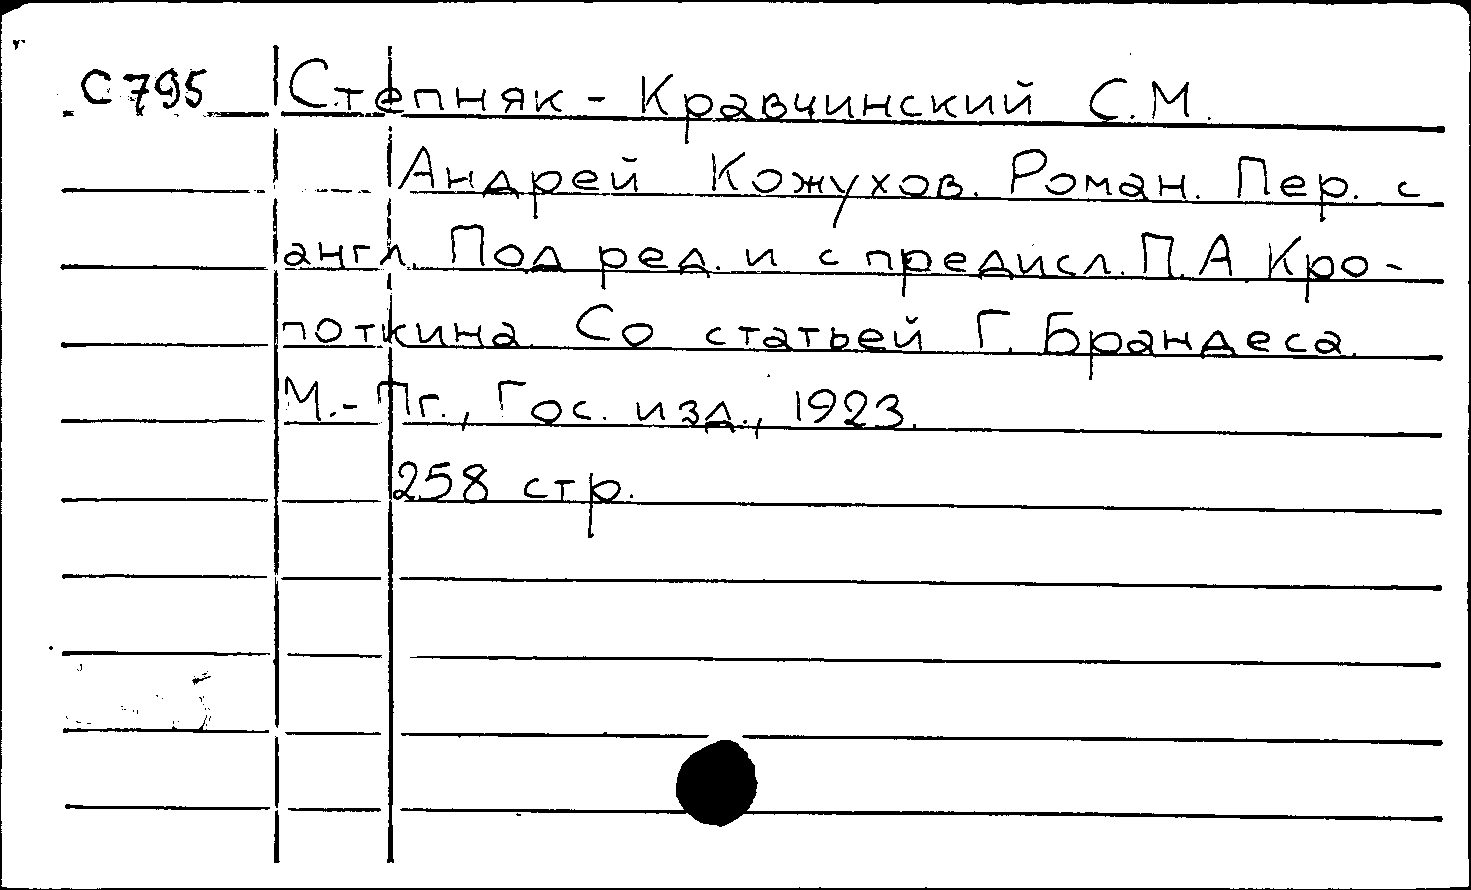 С795 Степняк-Кравчинский С.М.
Андрей Кожухов. Роман. Пер. с
англ. Под ред. и с предисл. П.А Кро-
поткина. Со статьей Г. Брандеса.
М.-Пг., Гос. изд., 1923.
258 стр.